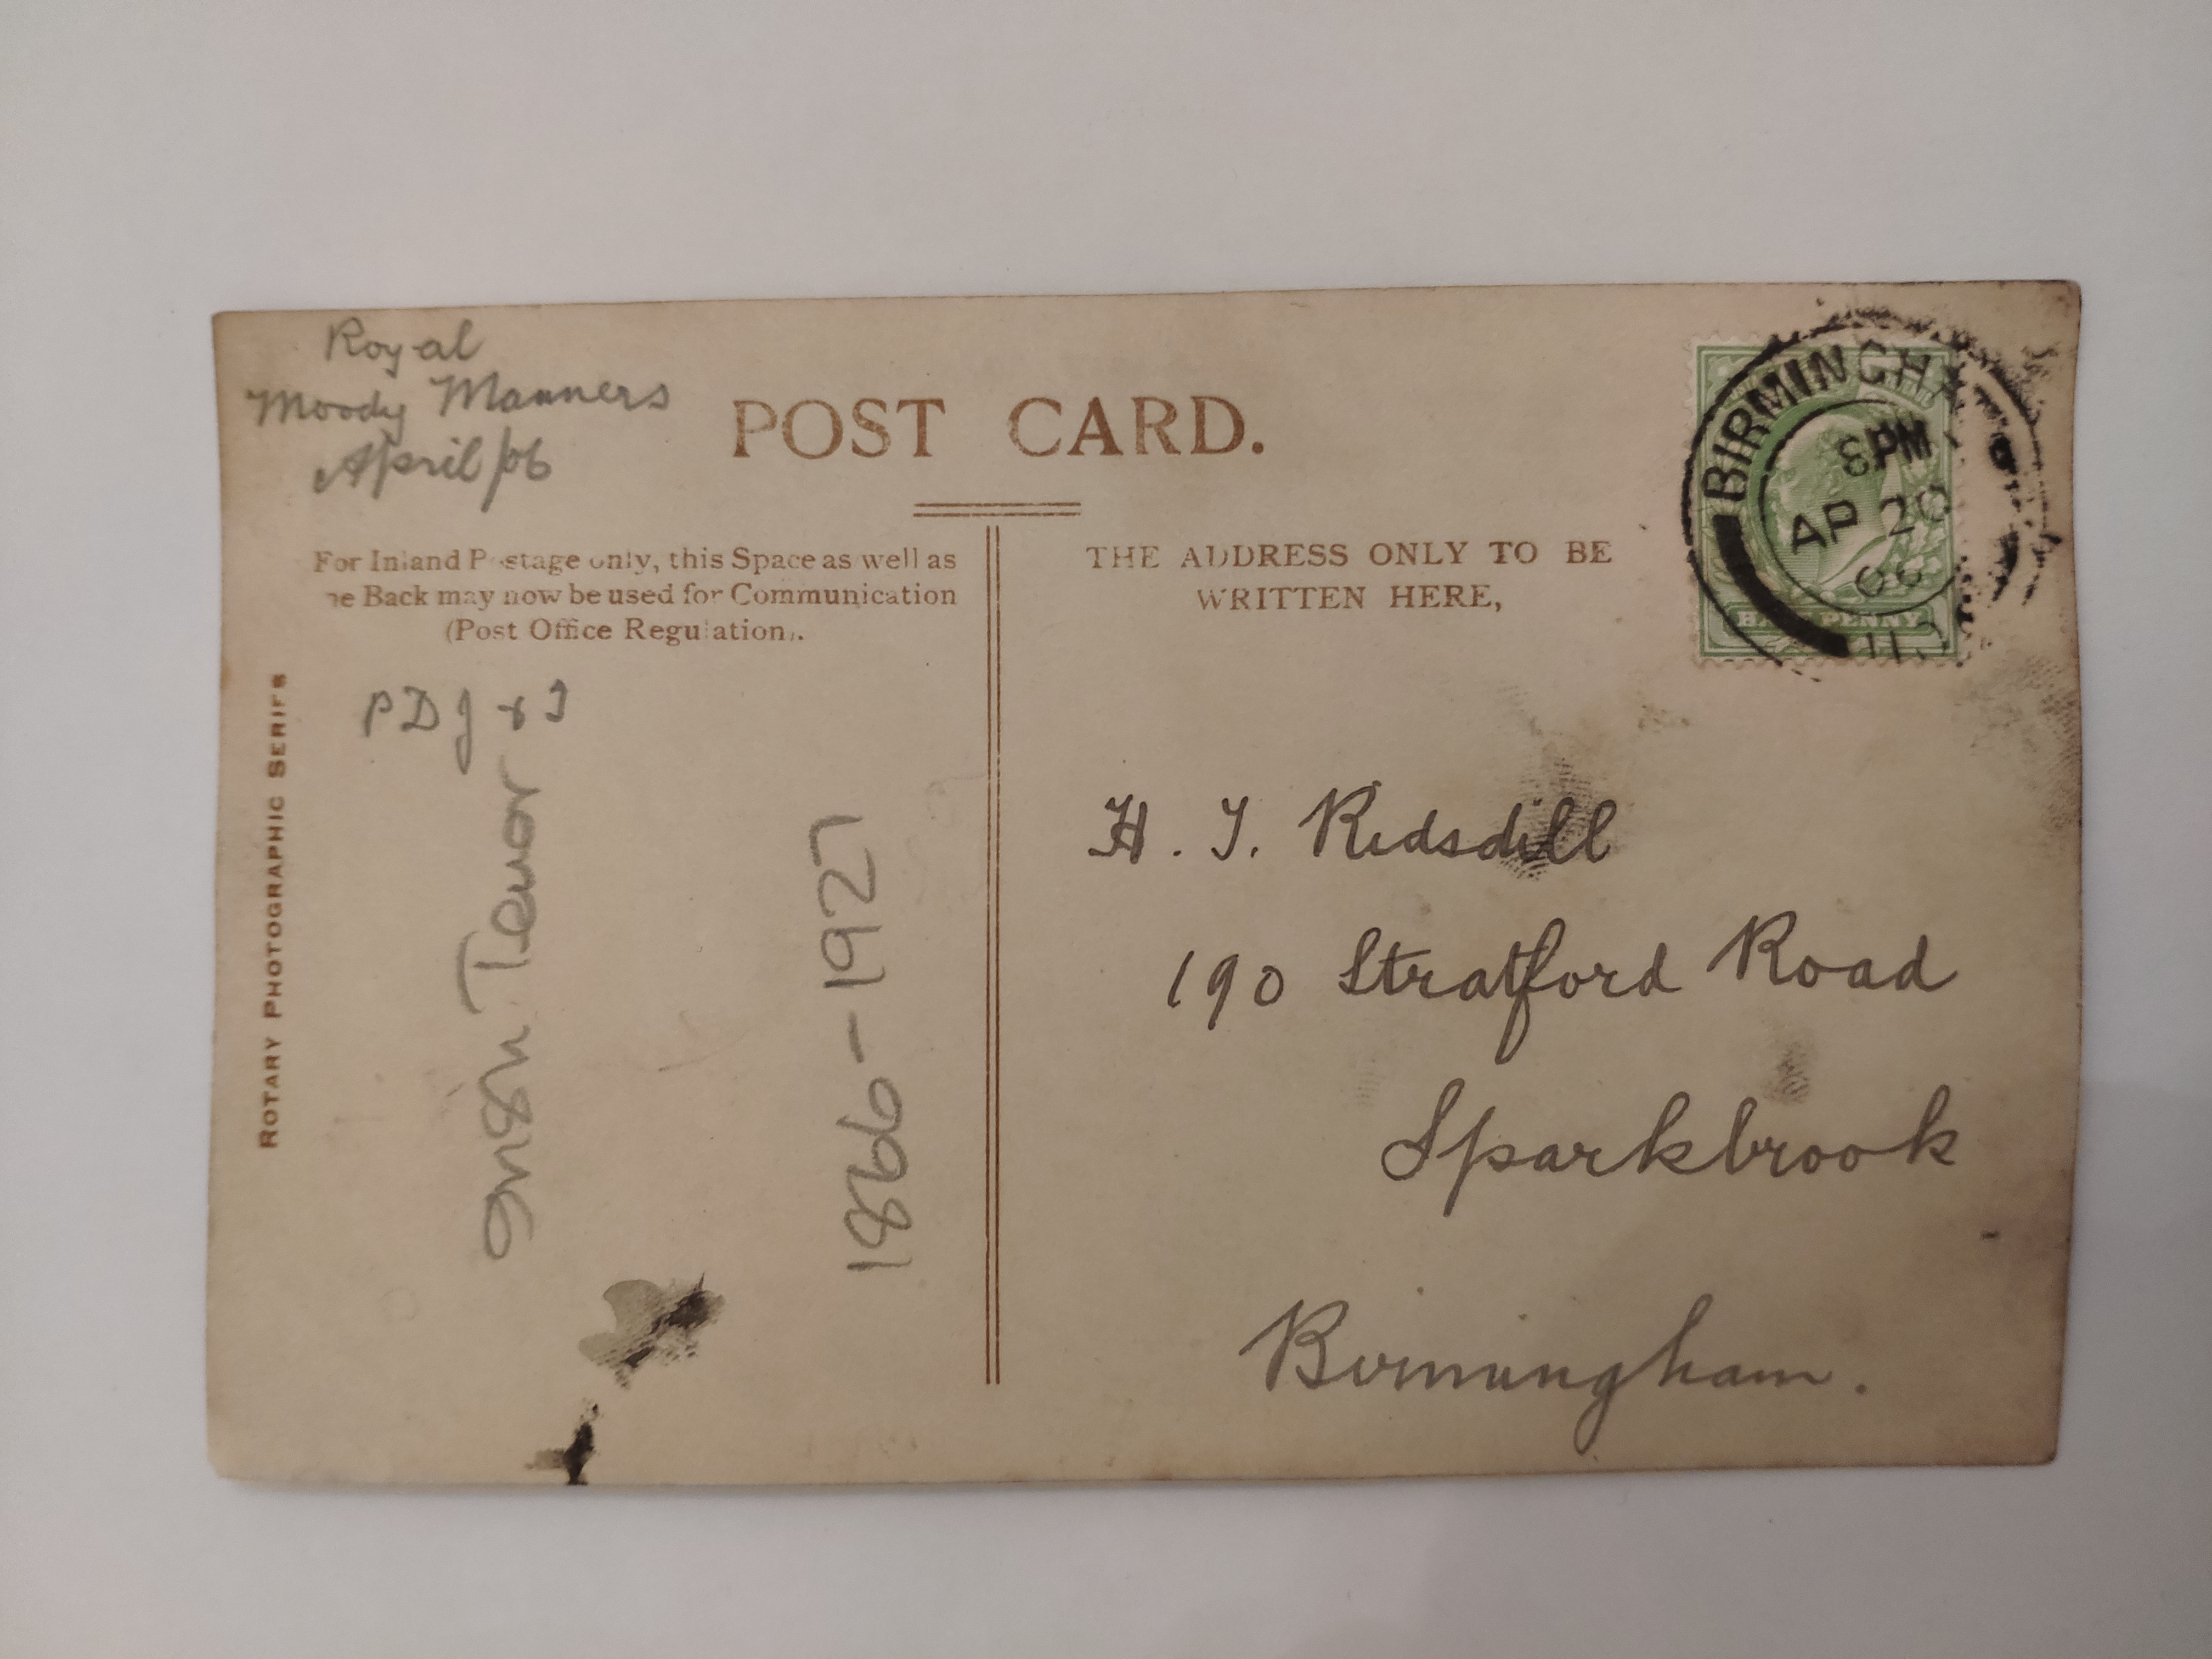 Royal
Moody Manners
April /06
POST CARD.
For Inland Postage only, this Space as well as
he Back may now be used for Communication
(Post Office Regulation).
THE ADDRESS ONLY TO BE
WRITTEN HERE,
BIRMINGHA
8 PM
AP 20
06
HALFPENNY
PDJ & I
Irish Tenor
1866-1927
ROTARY PHOTOGRAPHIC SERIES
H. J. Ridsdill
190 Stratford Road
Sparkbrook
Birmingham.